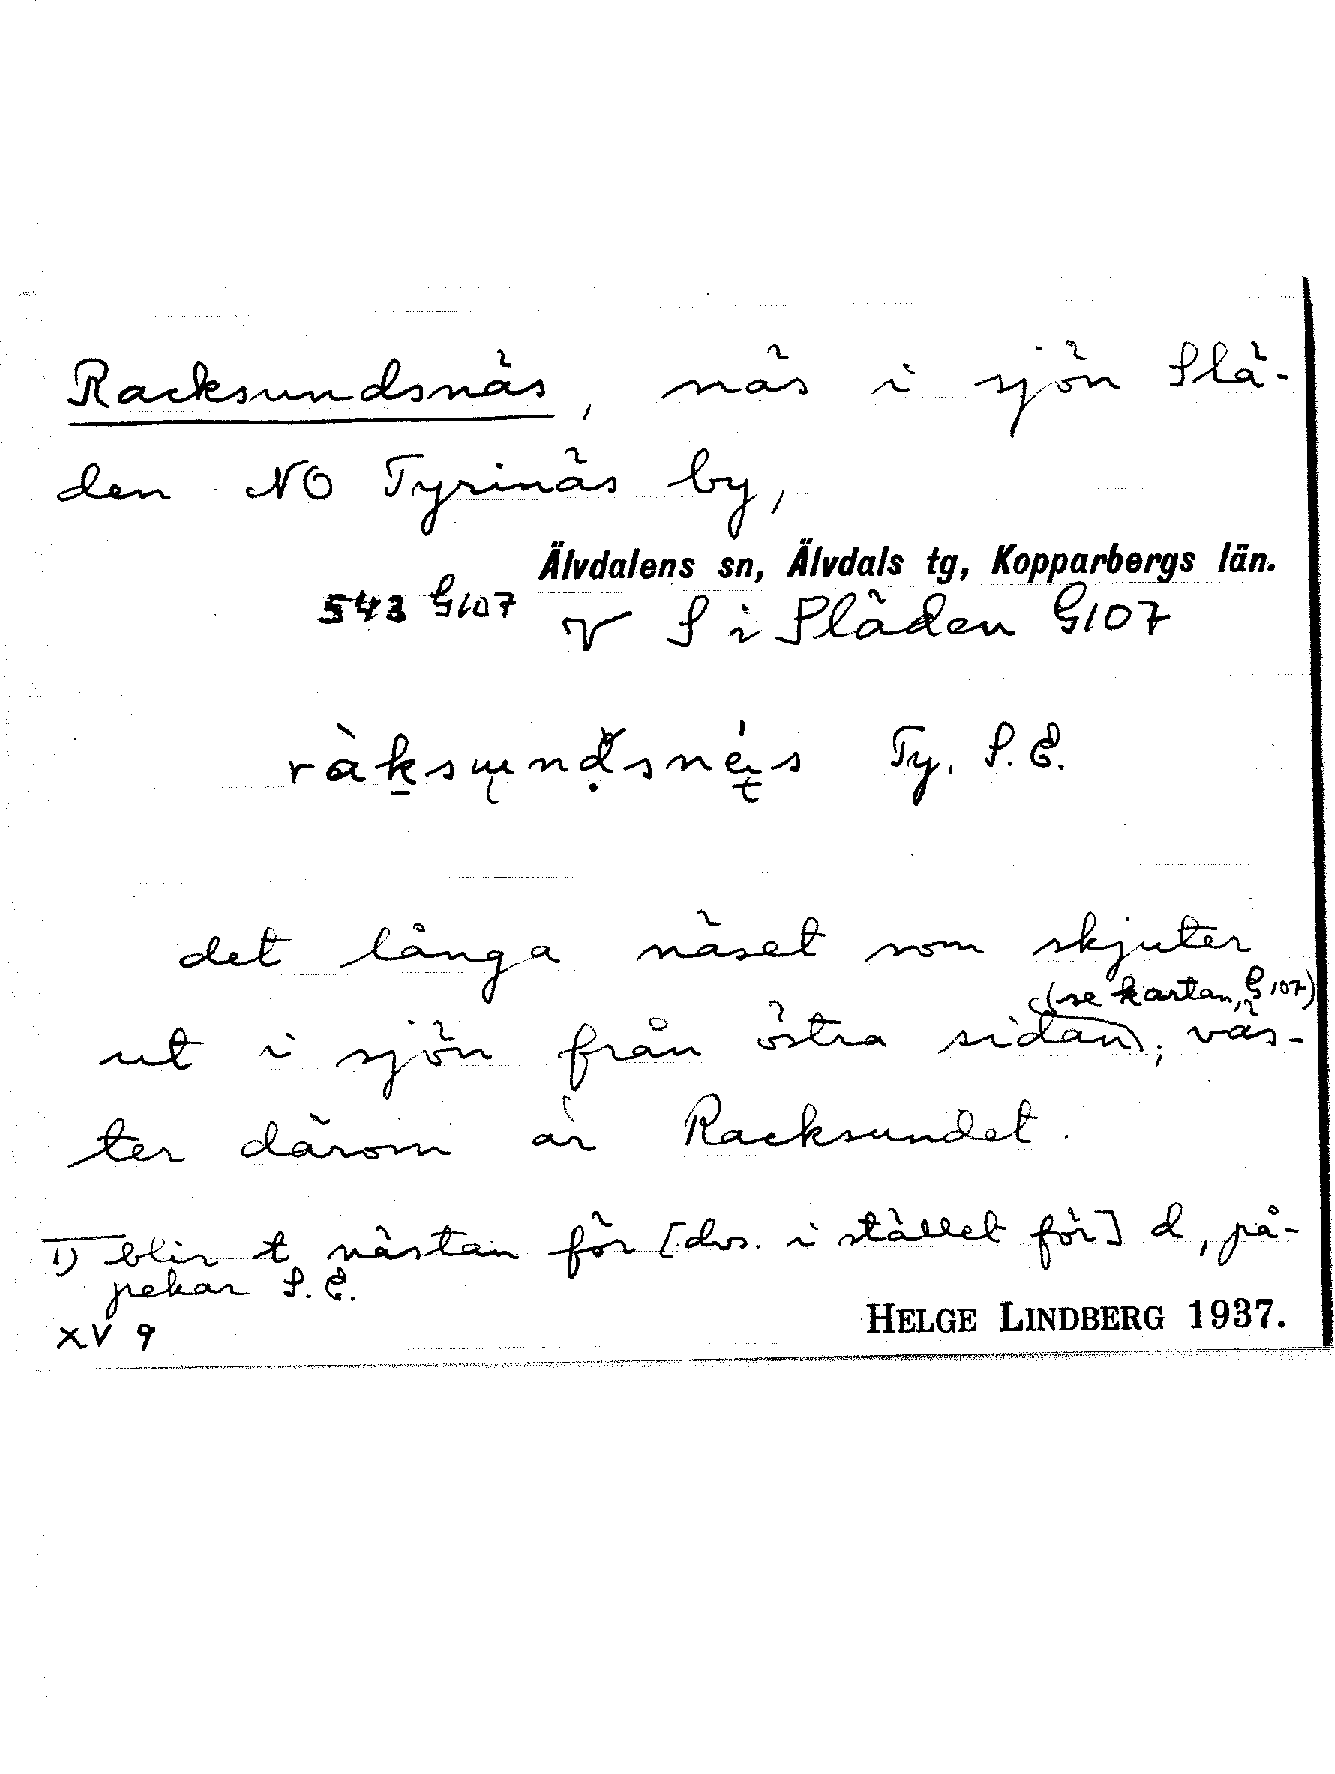 Racksundsnäs, näs i sjön Slä-
den NO Tyrinäs by,
Älvdalens sn, Älvdals tg, Kopparbergs län.
543 G107 V S i Släden G107
ràksundsnés Ty. S.E.
det långa näset som skjuter
(se kartan, G107)
ut i sjön från östra sidan; väs-
ter därom är Racksundet.
1) blir t nästan för [dvs. i stället för] d, på-
pekar S.E.
XV 9
HELGE LINDBERG 1937.